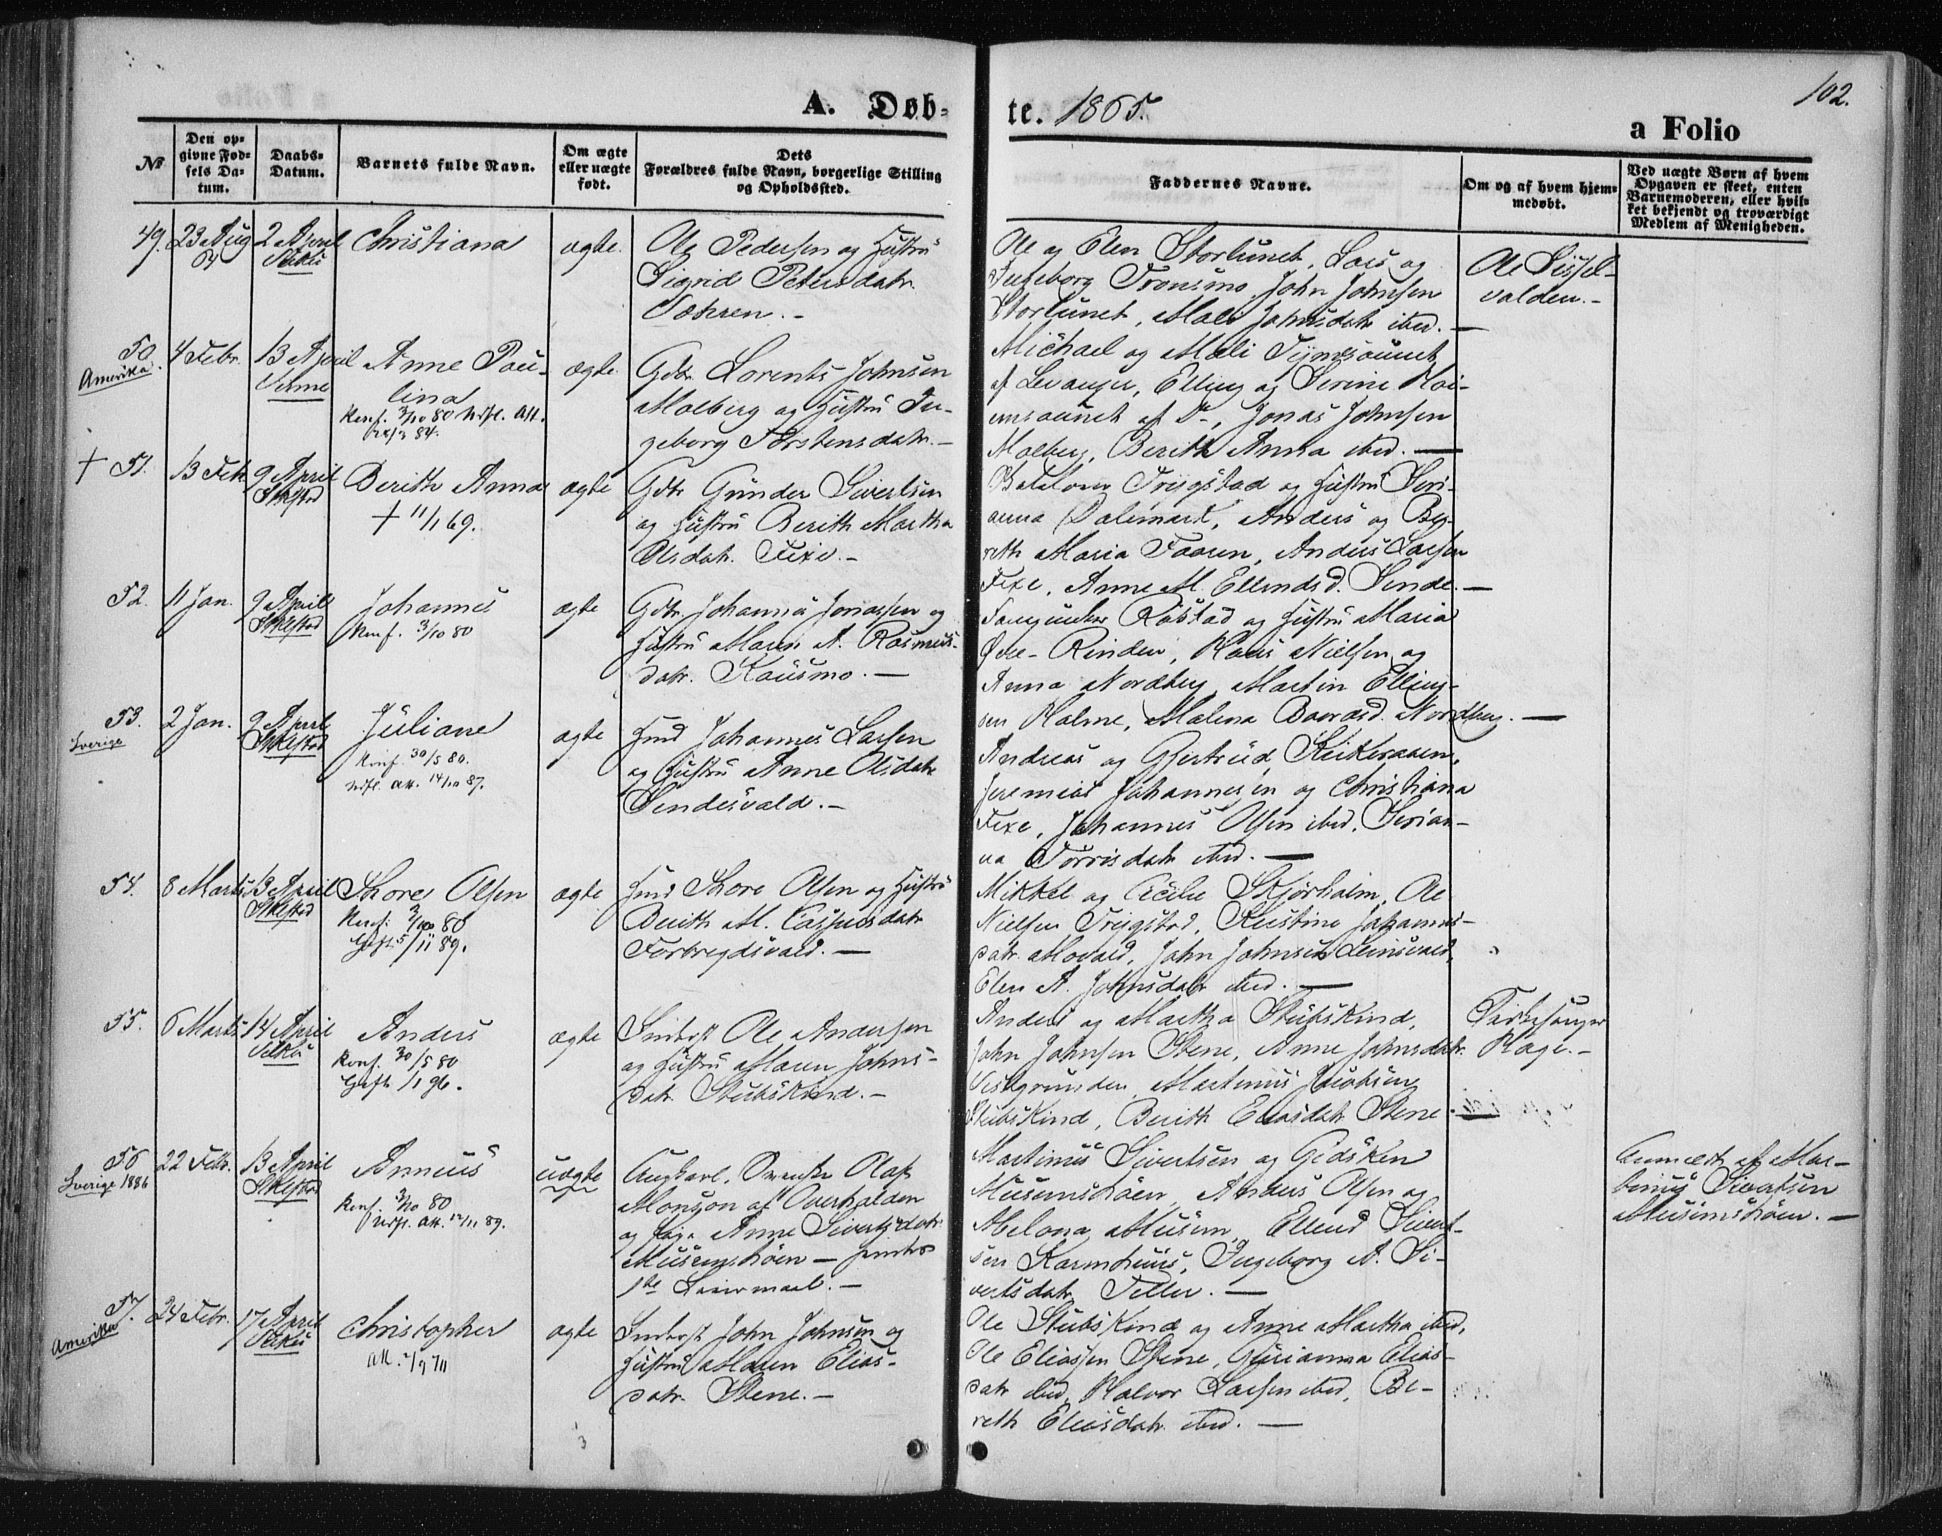 A. Døb-
te. 1865.
102.
a Folio
№
Den op-
givne Fød-
sels Da-
tum.
Daabs-
Datum.
Barnets fulde Navn.
Om ægte
eller uægte
født.
Dets
Forældres fulde Navn, borgerlige Stilling
og Opholdssted.
Faddernes Navne.
Om og af hvem hjem-
medøbt.
Ved uægte Børn af hvem
Opgaven er skeet, enten
Barnemoderen, eller hvil-
ket bekjendt og troværdigt
Medlem af Menigheden.
49. 23 Aug
2 April
Christiana
ægte.
Ole Pedersen og Hustru
Sigrid Petersdatr.
Væhren.-
Ole og Elen Storlunet, Lars og
Ingeborg Tronsmo, John Johnsen
Storlunet, Mali Johnsdatr ibid.-
Ole Sissel-
valden.-
50.
Amerika.
4 Febr.
13 April
Vinne
Anne Pau-
lina
Konf. 3/10 80
ægte.
Gdbr. Lorents Johnsen
Molberg og Hustru In-
geborg Torstensdatr.-
Michael og Mali Tynesaunet
af Levanger, Elling og Serine
af Do-, Jonas Johnsen
Molberg, Berith Anna ibid.-
+ 51.
13 Feb.
9 April
Stklstad
Berith Anna
+ 11/1 69.
ægte
Gdbr Gunder Sivertsen
og Hustru Berith Martha
Olsdatr. Fixe.-
Trygstad og Hustru Seri-
anna Dalemark, Anders og Be-
reth Maria Faaren, Anders Larsen
Fixe, Anne M. Ellendsd. Sende.-
52.
11 Jan.
9 April
Stklstad
Johannes
Konf. 3/10 80
ægte
Gdbr. Johannes Jonassen og
Hustru Maren A. Rasmus-
datr. Kausmo.-
Røstad og Hustru Maria
Øvre-Rinden, Hans Nielsen og
Anna Nordberg, Martin Elling-
sen Holme, Malena Baardsd. Nordberg.-
53.
Sverige
2 Jan.
9 April
Stklstad
Juliane
Konf. 30/5 80.
Udfl. Att. 14/10 87.
ægte
Hmd Johannes Larsen
og Hustru Anne Olsdatr
Sendesvald.-
Andreas og Gjertrud
Jeremias Johannesen og Christiana
Fixe, Johannes Olsen ibid, Serian-
na Torrisdatr ibid.-
54.
8 Marts
13 April
Stklstad
Thore Olsen
Konf. 3/10 80
Gift 5/11 89.
ægte
Hmd Thore Olsen og Hustru
Berith M. Caspersdatr
Forbregdsvald.-
Mikkel og Cecilie Skjørholm, Ole
Nielsen Trygstad, Kristine Johannes-
datr. Movald, John Johnsen Leinsvald,
Elen A. Johnsdatr ibid.-
55.
6 Marts
14 April
Anders
Konf. 30/5 80
Gift /1 96.
ægte
Ole Andersen
og Hustru Maren Johns-
datr Stubskind.-
Anders og Martha Stubskind,
John Johnsen Stene, Anne Johnsdatr.
Vistgrunden, Martinus Jacobsen
Stubskind, Berith Eliasdatr Stene.
Kirkesanger
Hage.-
56
Sverige 1886
22 Febr.
13 April
Stklstad
Annæus
Konf. 3/10 80
Udfl. Att. 12/11 89.
uægte
Ungkarl, Svensken Olof
Monson af Overhalden
og Pige Anne Sivertsdatr.
Musumshøen - hendes
1ste Leiermaal.-
Martinus Sivertsen og Gidsken
Musumshøen, Anders Olsen og
Melona Musum, Ellend Sivert-
sen Karmhuus, Ingeborg A. Si-
vertsdatr Teller.-
Anmeldt af Mar-
tinus Sivertsen
Musumshøen.-
57.
Amerika
24 Febr.
17 April
Christopher
ægte
John Johnsen og
Hustru Maren Elias-
datr. Stene.-
Ole Stubskind og Anne Martha ibid,
Ole Eliassen Stene, Gurianna Elias-
datr ibid, Halvor Larsen ibid, Be-
reth Eliasdatr ibid.-